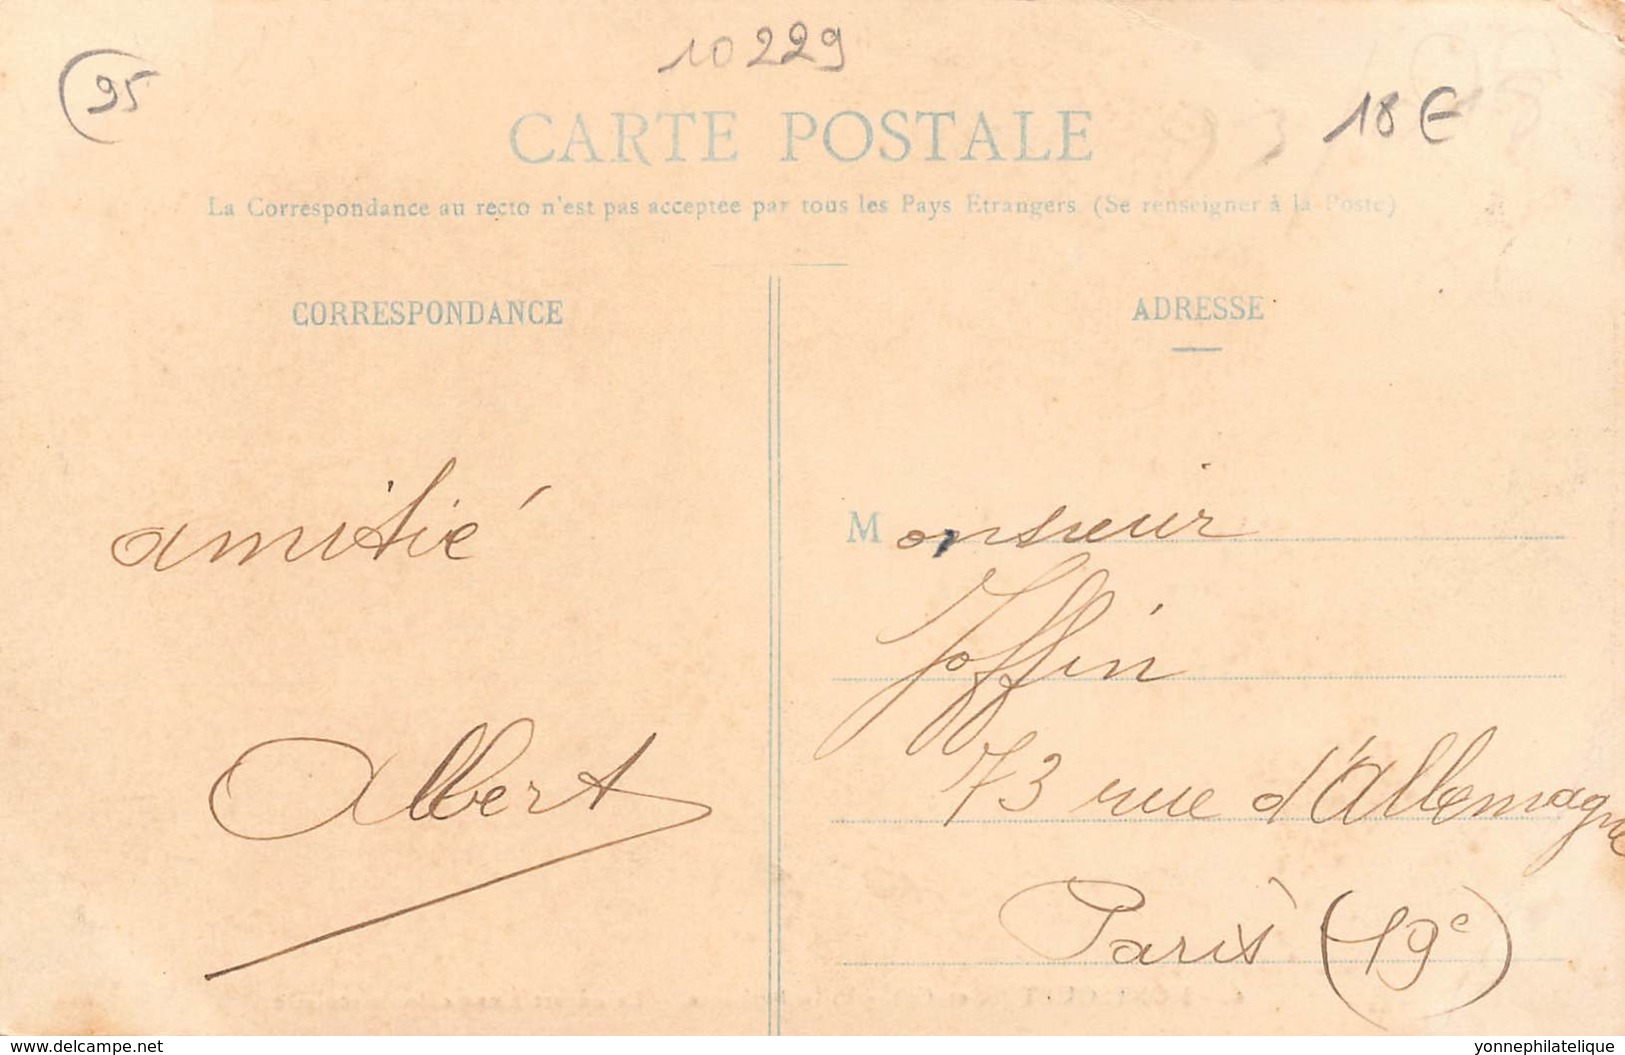 95
10229
18€
CARTE POSTALE
La Correspondance au recto n'est pas acceptée par tous les Pays Etrangers (Se renseigner à la Poste)
CORRESPONDANCE
amitié
Albert
ADRESSE
Monsieur
Joffin
73 rue d'Allemagne
Paris (19e)
www.delcampe.net
yonnephilatelique